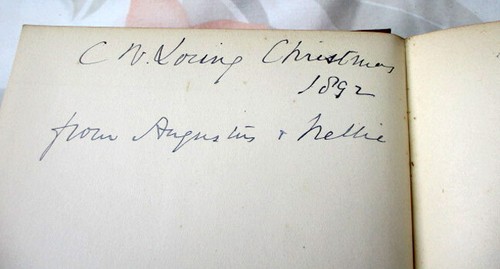 C W. Loring Christmas
1892
from Augustus & Nellie